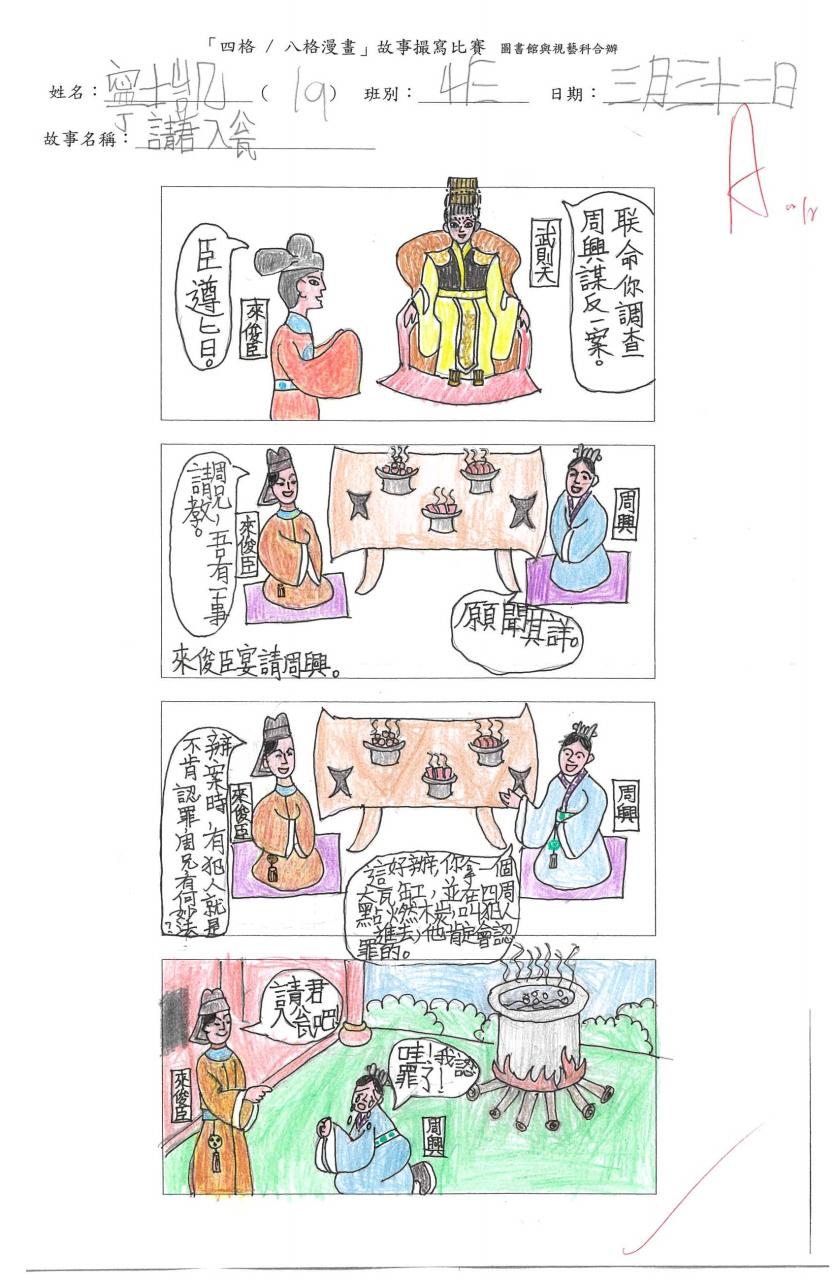 「四格 / 八格漫畫」故事撮寫比賽 圖書館與視藝科合辦
姓名：甯士凱 ( 19 ) 班別：4E 日期：三月三十一日
故事名稱：請君入瓮
A
武則天
联命你調查
周興謀反一案。
來俊臣
臣遵旨。
周興
來俊臣
周兄，吾有一事
請教。
願聞其詳。
來俊臣宴請周興。
周興
來俊臣
辦案時，有犯人就是
不肯認罪周兄有何妙法？
這好辦，你拿一個
大瓦缸，並在四周
點燃木炭，叫犯人
進去，他肯定會認
罪的。
請君
入瓮吧
來俊臣
哇！我認
罪了！
周興